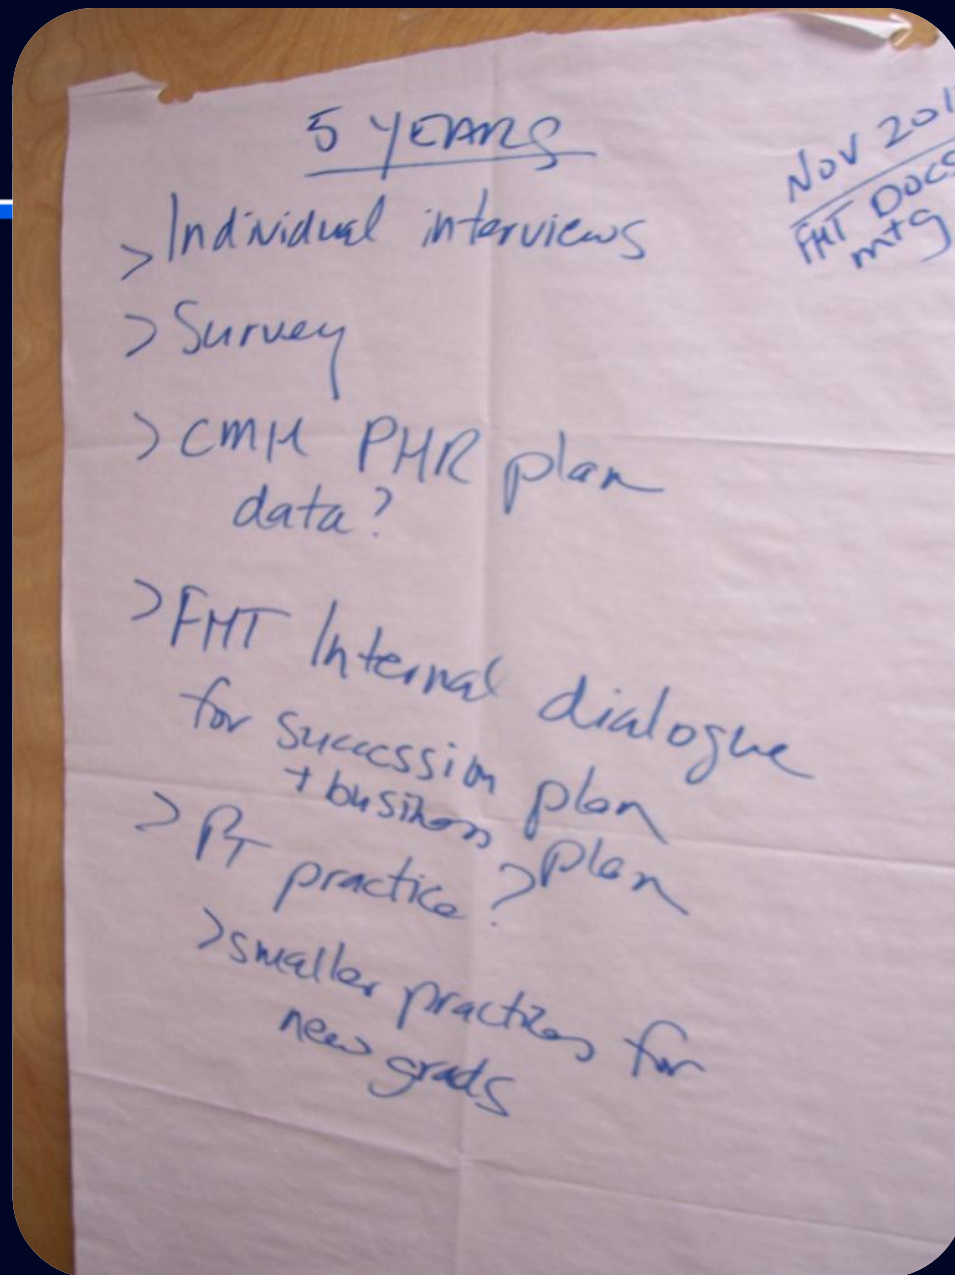 5 YEARS
NOV 201
FHT DOCS
mtg
> Individual interviews
> Survey
> CMH PHR plan
data?
> FHT Internal dialogue
for succssion plan
+ business plan
> PT practice?
> smaller practices for
new grads